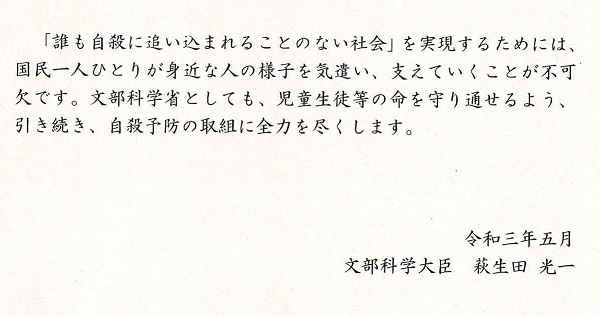 「誰も自殺に追い込まれることのない社会」を実現するためには、
国民一人ひとりが身近な人の様子を気遣い、支えていくことが不可
欠です。文部科学省としても、児童生徒等の命を守り通せるよう、
引き続き、自殺予防の取組に全力を尽くします。
令和三年五月
文部科学大臣　萩生田 光一